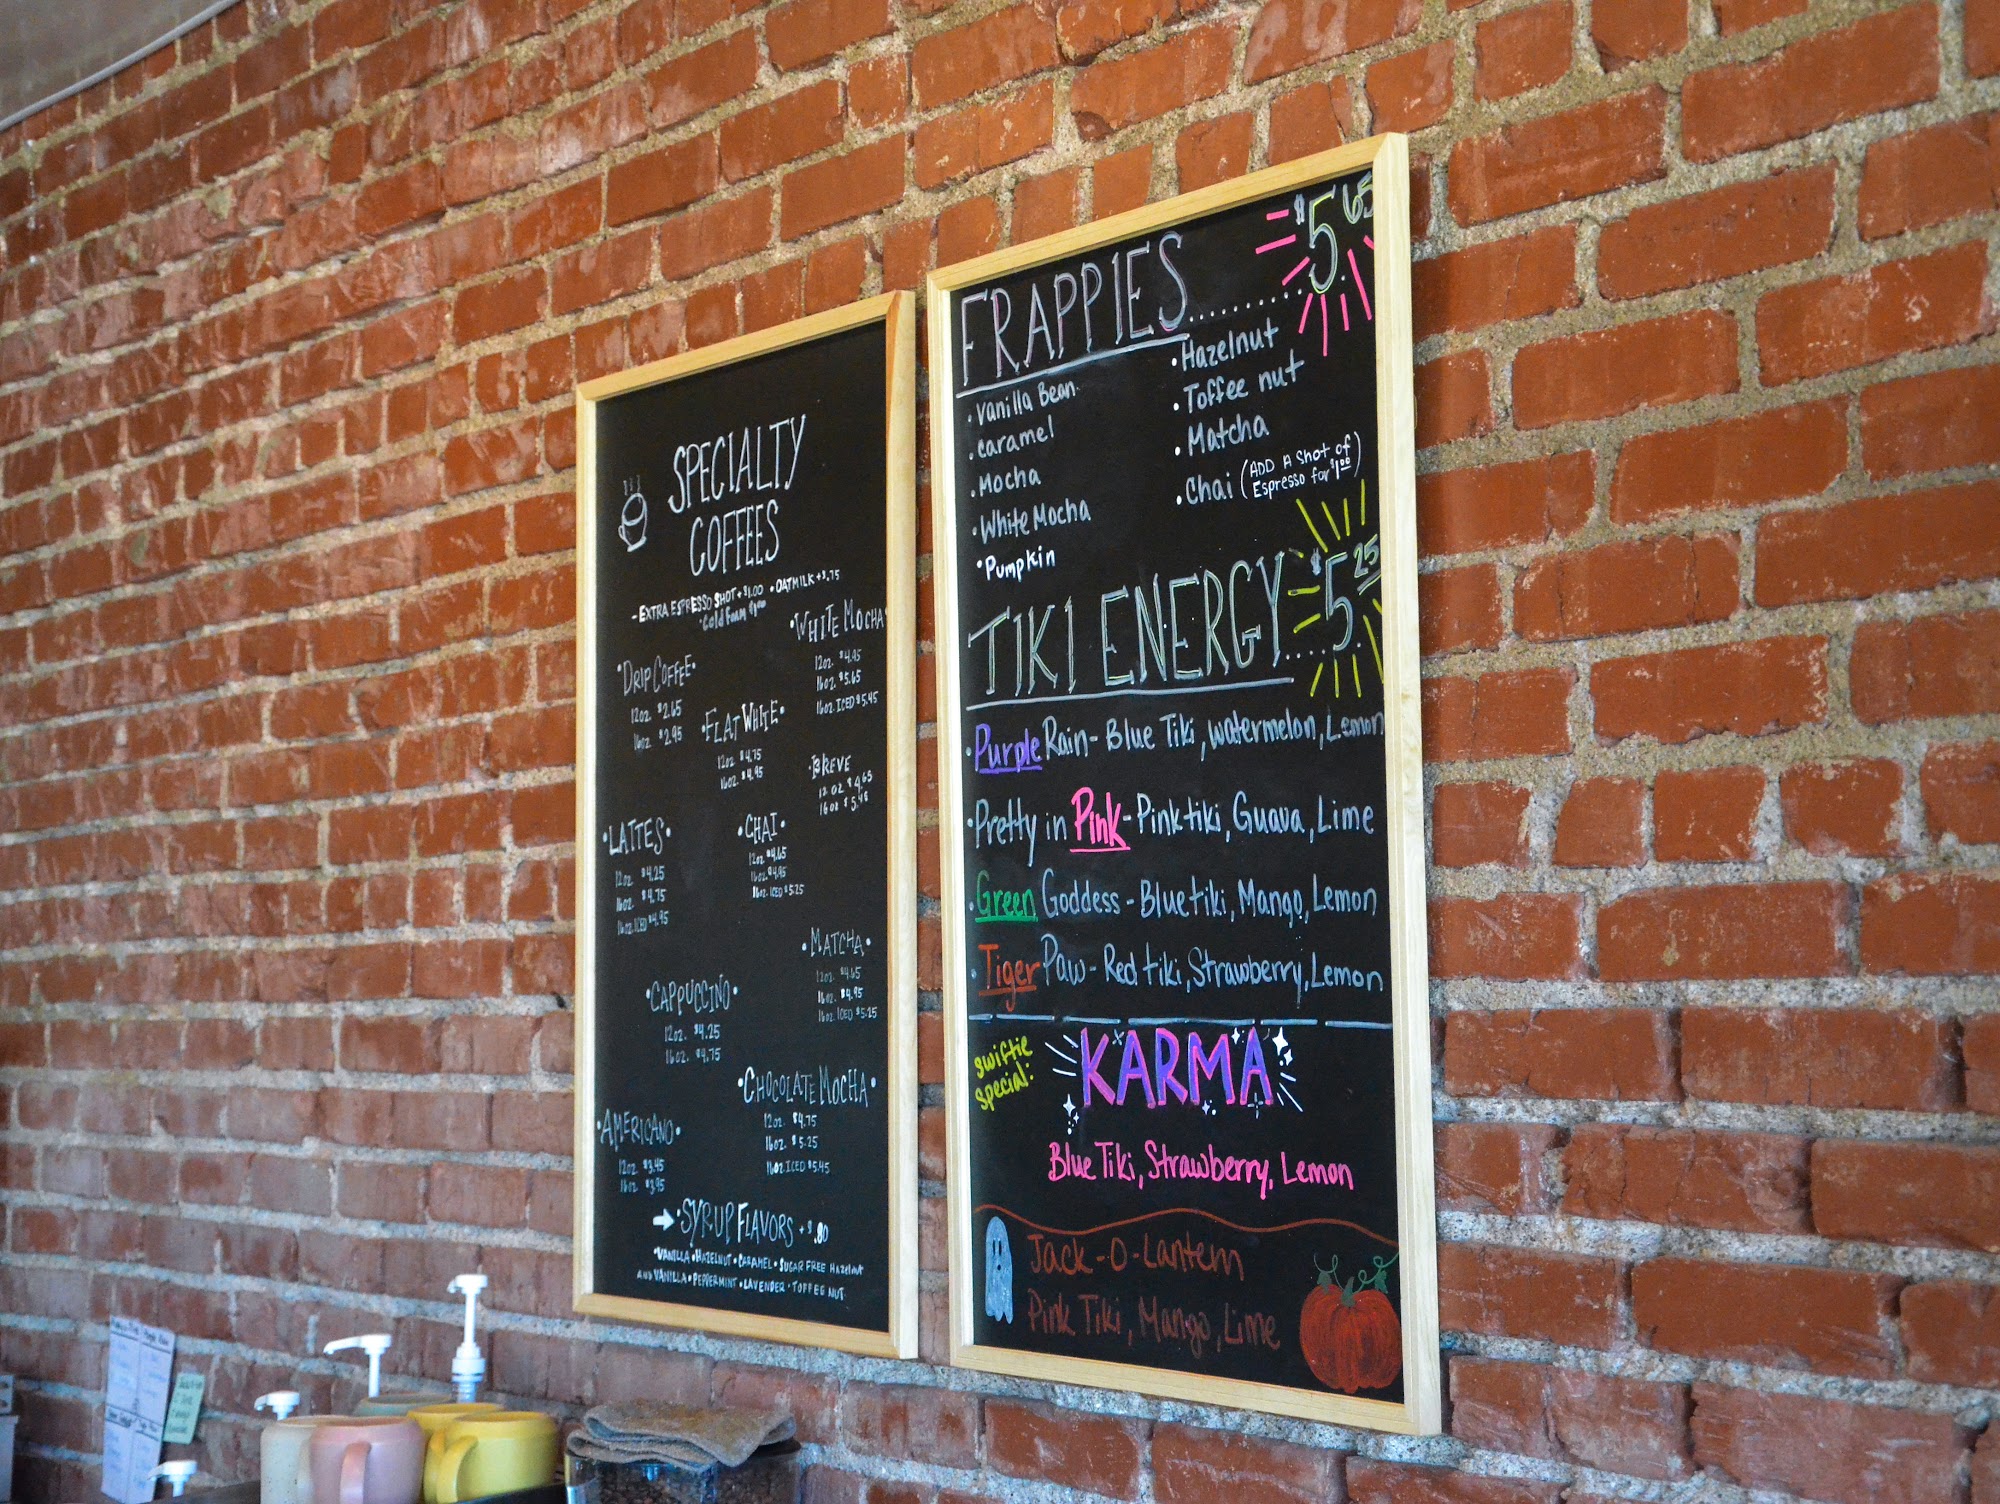 SPECIALTY
COFFEES
- EXTRA ESPRESSO SHOT + $1.00 • OATMILK + $.75
• Cold Foam $1.00
• WHITE MOCHA
12oz. $4.95
16oz. $5.65
16oz. ICED $5.45
• DRIP COFFEE •
12oz. $2.65
16oz. $2.95
• FLAT WHITE •
12oz $4.75
16oz. $4.95
• BREVE
12 oz $4.65
16oz $5.45
• LATTES •
12oz. $4.25
16oz. $4.75
16oz. ICED $4.95
• CHAI •
12oz $4.65
16oz. $4.95
16oz. ICED $5.25
• MATCHA •
12oz. $4.65
16oz. $4.95
16oz. ICED $5.25
• CAPPUCCINO •
12oz. $4.25
16oz. $4.75
• CHOCOLATE MOCHA •
12oz. $4.75
16oz $5.25
16oz ICED $5.45
• AMERICANO •
12oz. $3.45
16oz. $3.95
→ • SYRUP FLAVORS + $.80
• VANILLA • HAZELNUT • CARAMEL • SUGAR FREE HAZELNUT
AND VANILLA • PEPPERMINT • LAVENDER • TOFFEE NUT
FRAPPIES........$5.65
• Vanilla Bean
• caramel
• Mocha
• White Mocha
• Pumpkin
• Hazelnut
• Toffee nut
• Matcha
• Chai (ADD A shot of
Espresso for $1.00)
TIKI ENERGY....$5.25
• Purple Rain - Blue Tiki, watermelon, Lemon
• Pretty in Pink - Pink tiki, Guava, Lime
• Green Goddess - Blue tiki, Mango, Lemon
• Tiger Paw - Red tiki, Strawberry, Lemon
swiftie
special:
KARMA
Blue Tiki, Strawberry, Lemon
Jack-O-Lantern
Pink Tiki, Mango, Lime